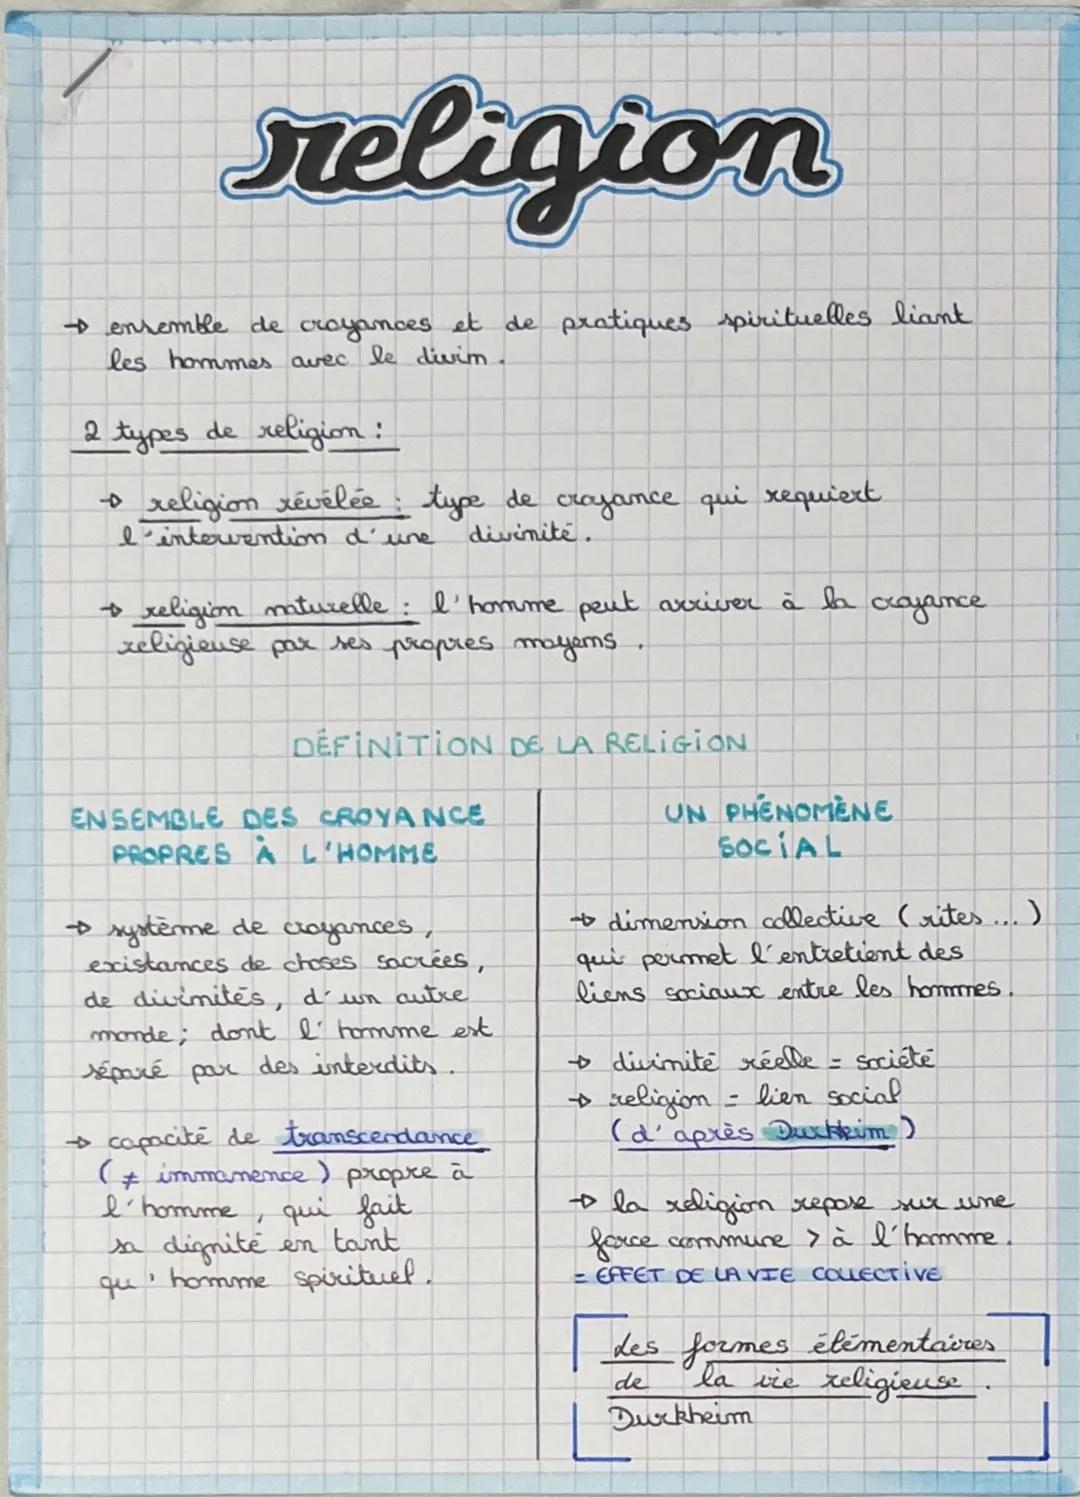 religion
→ ensemble de croyances et de pratiques spirituelles liant
les hommes avec le divin.
2 types de religion :
→ religion révélée : type de croyance qui requiert
l'intervention d'une divinité.
→ religion naturelle : l'homme peut arriver à la croyance
religieuse par ses propres moyens.
DÉFINITION DE LA RELIGION
ENSEMBLE DES CROYANCE
PROPRES À L'HOMME
→ système de croyances,
existances de choses sacrées,
de divinités, d'un autre
monde; dont l'homme est
séparé par des interdits.
→ capacité de transcendance
(≠ immanence) propre à
l'homme, qui fait
sa dignité en tant
qu'homme spirituel.
UN PHÉNOMÈNE
SOCIAL
→ dimension collective (rites...)
qui permet l'entretient des
liens sociaux entre les hommes.
→ divinité réelle = société
→ religion = lien social
(d'après Durkheim)
→ la religion repose sur une
force commune > à l'homme.
= EFFET DE LA VIE COLLECTIVE
Les formes élémentaires
de la vie religieuse.
Durkheim